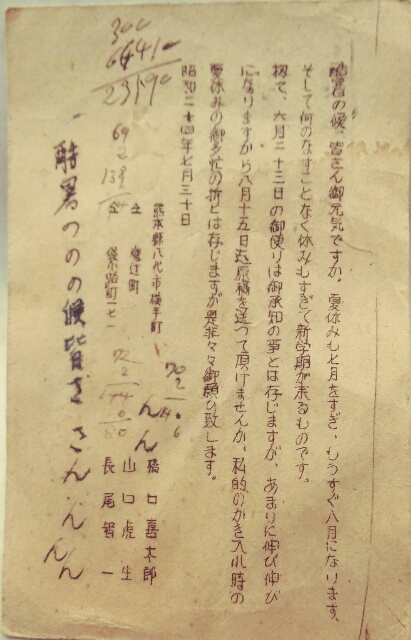 酷暑の候、皆さん御元気ですか。夏休みも七月をすぎ、もうすぐ八月になります。
そして何のなすことなく休みもすぎて新学期が来るものです。
扨て、六月二十三日の御便りは御承知の事とは存じますが、あまりに伸び伸び
になりますから八月十五日迄原稿を送って頂けませんか。私的のかき入れ時の
夏休みの御多忙の折とは存じますが是非々々御願ひ致します。
昭和二十四年七月三十日
熊本縣八代市横手町
仝 鷹辻町
仝 袋小路町二七一
橋口喜木郎
山口虎生
長尾智一
300
64410
23190
69
2
138
72
2
144
70
2
酷暑つのの候皆さ
さん
ん
ん
ん
ん
ん